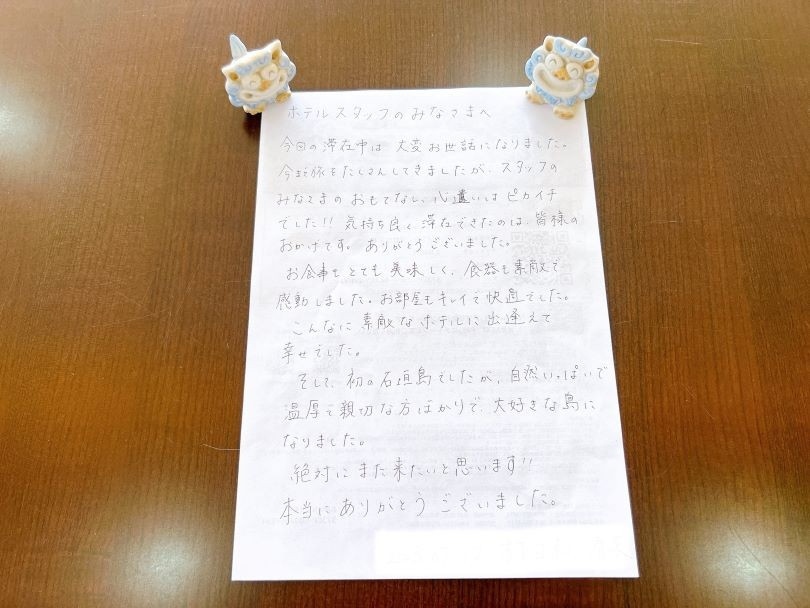 ホテルスタッフのみなさまへ
今回の滞在中は 大変お世話になりました。
今まで旅をたくさんしてきましたが、スタッフの
みなさまの おもてなし、心遣いは ピカイチ
でした!! 気持ち良く 滞在できたのは、皆様の
おかげです。 ありがとうございました。
お食事も とても 美味しく、食器も素敵で
感動しました。お部屋もキレイで快適でした。
こんなに 素敵なホテルに出逢えて
幸せでした。
そして、初の石垣島でしたが、自然いっぱいで
温厚で親切な方ばかりで、大好きな島に
なりました。
絶対にまた来たいと思います!!
本当にありがとうございました。